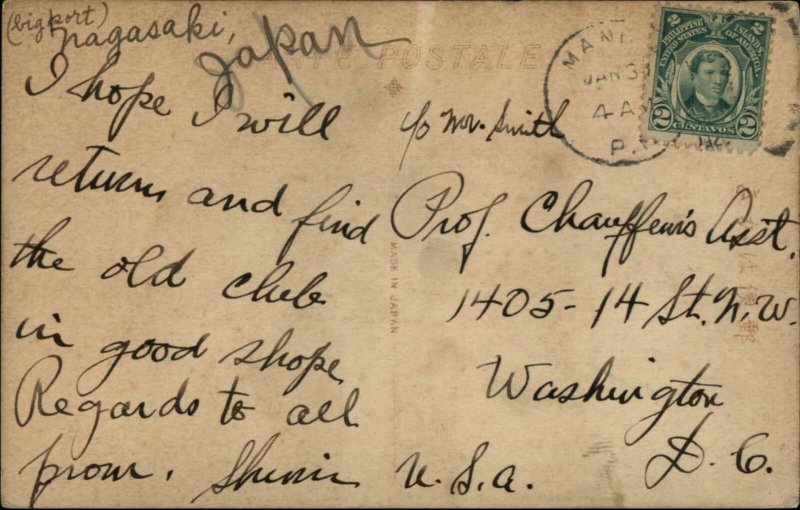 (big port)
Nagasaki,
Japan
CARTE POSTALE
I hope I will
return and find
the old club
in good shape
Regards to all
from.
c/o Mr. Smith
Prof. Chauffeur's Asst.
1405-14 St. N.W.
Washington
D. C.
U. S. A.
MADE IN JAPAN
PHILIPPINE ISLANDS
UNITED STATES OF AMERICA
2 CENTAVOS 2
JAN 3
4 AM
P.